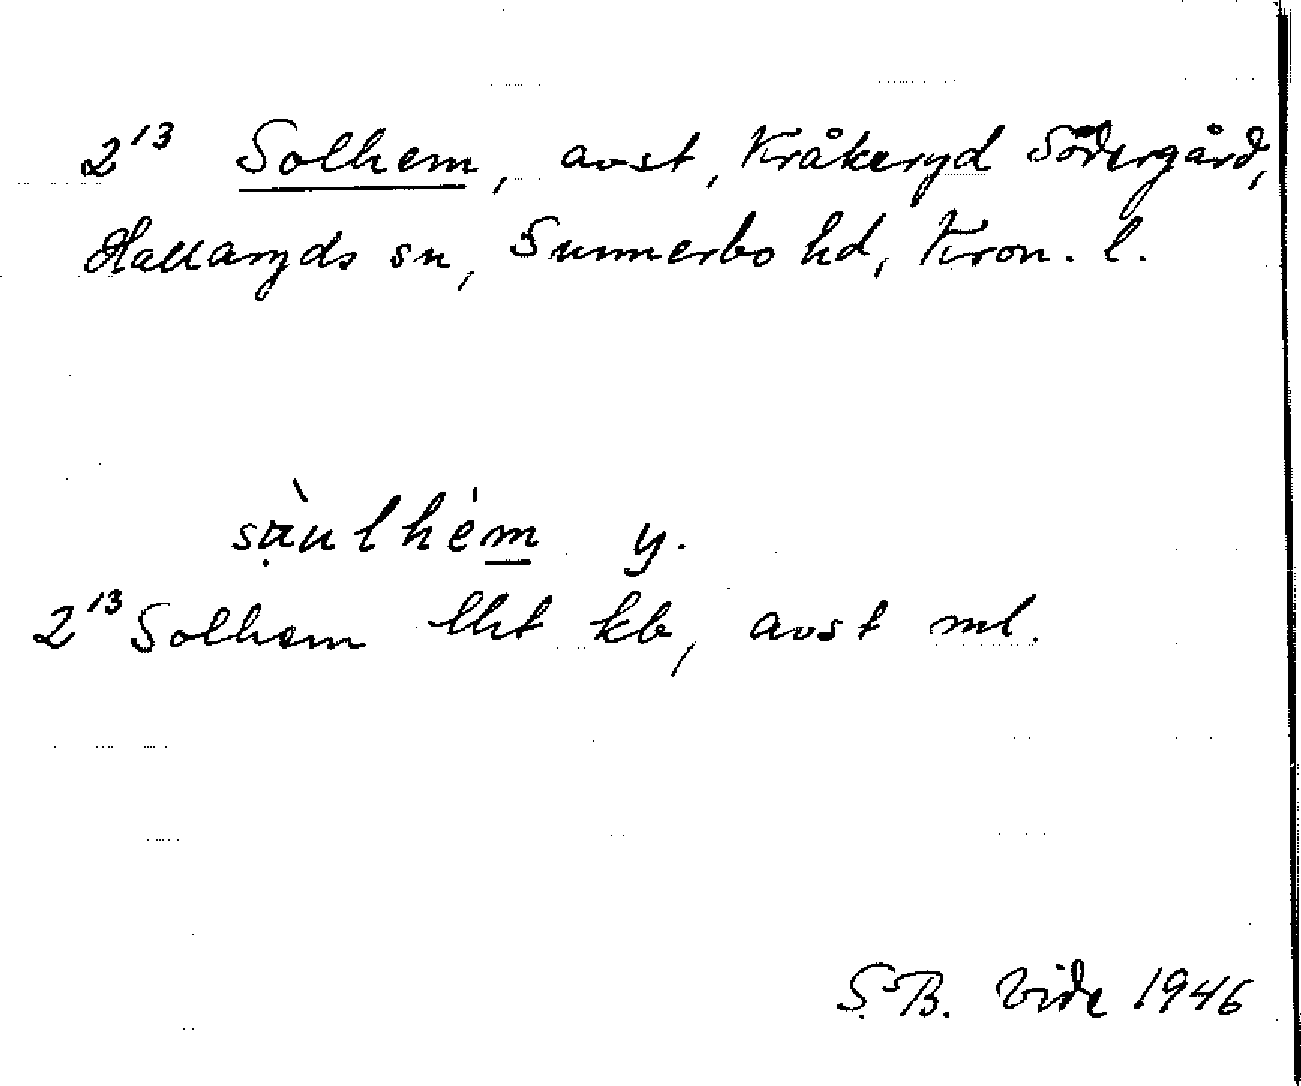 2¹³ Solhem, avst, Kråkeryd Södergård,
Hallaryds sn, Sunnerbo hd, Kron. l.
sạ̀ulhém y.
2¹³ Solhem lht kb, avst ml.
S.B. Vide 1946